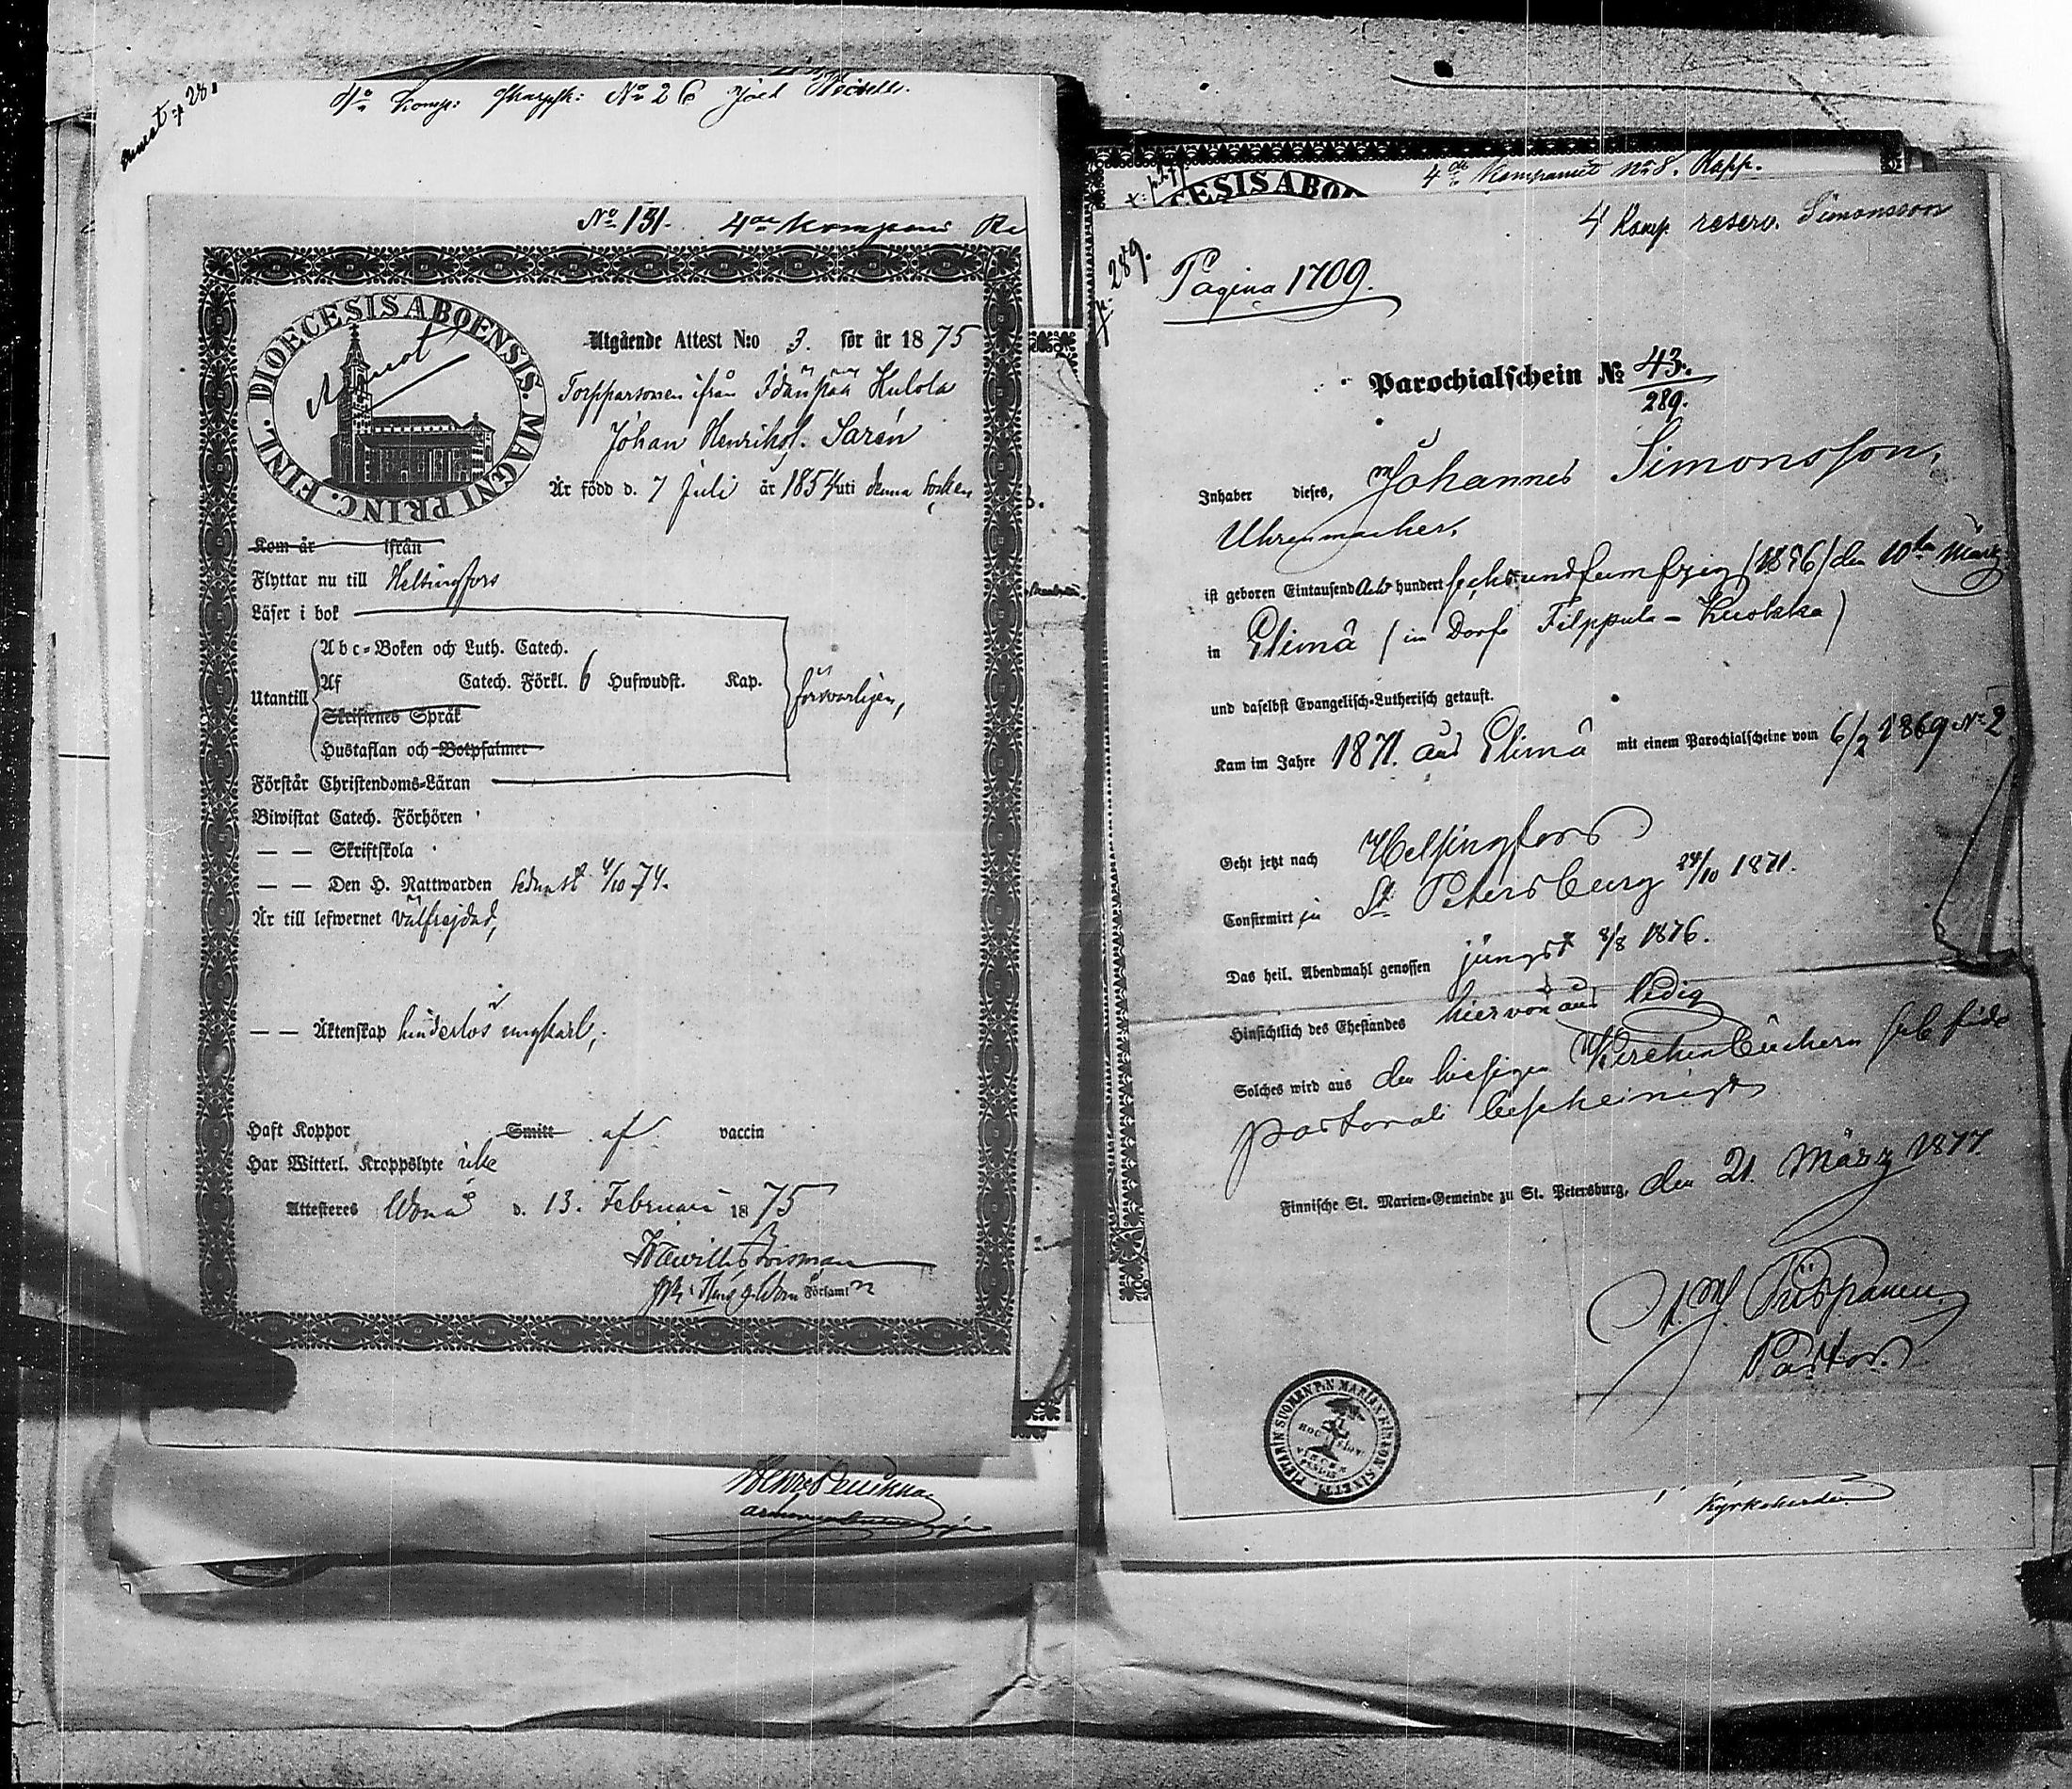 Komp: Skarpsk: No 26 Joel
No 131. 4de Kompani Re
DIOECESIS ABOENSIS. MAGNI PRINC. FINL.
Utgående Attest N:o 3. för år 1875
Torpparsonen ifrån Hulola
Johan Henriksf. Sarén
Är född d. 7 Juli år 1854 uti denna socken
Kom år ifrån
Flyttar nu till Helsingfors
Läser i bok
Abc-Boken och Luth. Catech.
Utantill Af Catech. Förkl. 6 Hufwudst. Kap. försvarligen,
Skriftenes Språk
Hustaflan och Botpsalmer
Förstår Christendoms-Läran
Biwistat Catech. Förhören
— — Skriftskola
— — Den H. Nattwarden sednast 4/10 74.
Är till lefwernet välfrejdad,
— — Äktenskap hinderlös ungkarl,
Haft Koppor Smitt af vaccin
Har Witterl. Kroppslyte icke
Attesteras d. 13. Februari 1875
Församl
4de Kompaniet No 8. Rapp.
ŒCESIS ABO
4 Komp reserv. Simonsson
289.
Pagina 1709.
Parochialschein No 43.
289.
Inhaber dieses, Johannes Simonsson,
Uhrenmacher,
ist geboren Eintausend Acht hundert sechsundfumfzig (1856) den 10ten März
in Elimä (im Dorfe Filppula-Kuokka)
und daselbst Evangelisch-Lutherisch getauft.
Kam im Jahre 1871. aus Elimä mit einem Parochialscheine vom 6/2 1869 No 2.
Geht jetzt nach Helsingfors
Confirmirt zu St. Petersburg 24/10 1871.
Das heil. Abendmahl genossen jüngst 8/8 1876.
Hinsichtlich des Ehestandes hiervon aus ledig
Solches wird aus den hiesigen Kirchenbüchern sub fide
pastorali bescheinigt
Finnische St. Marien-Gemeinde zu St. Petersburg, den 21. März 1877.
Pastor.
PIETARIN SUOMEN P:N MARIAN KIRKON SINETTI.
Kyrkoherde